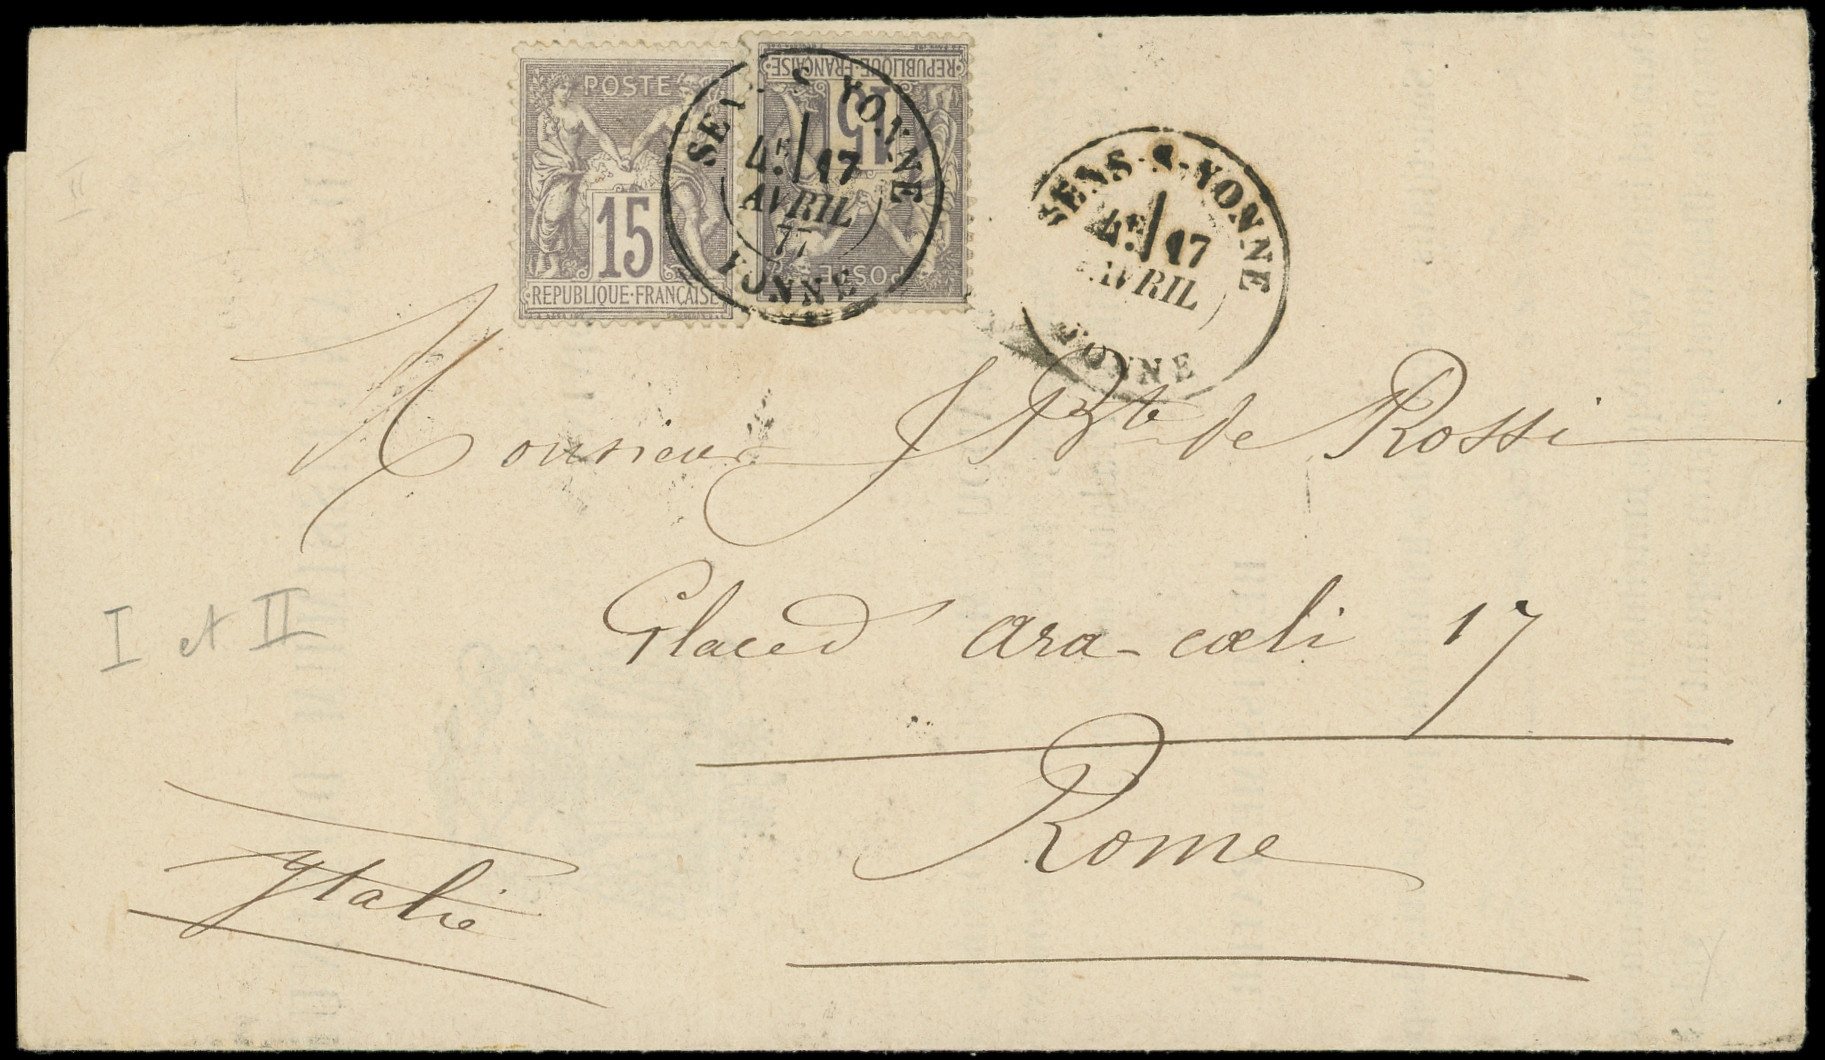 POSTE
15
REPUBLIQUE·FRANÇAISE
REPUBLIQUE·FRANÇAISE
15
POSTE
SENS-S-YONNE
4E 17
AVRIL
77
YONNE
SENS-S-YONNE
4E 17
AVRIL
YONNE
Monsieur J Bte de Rossi
Place d'ara-cœli 17
Rome
Ytalie
I et II